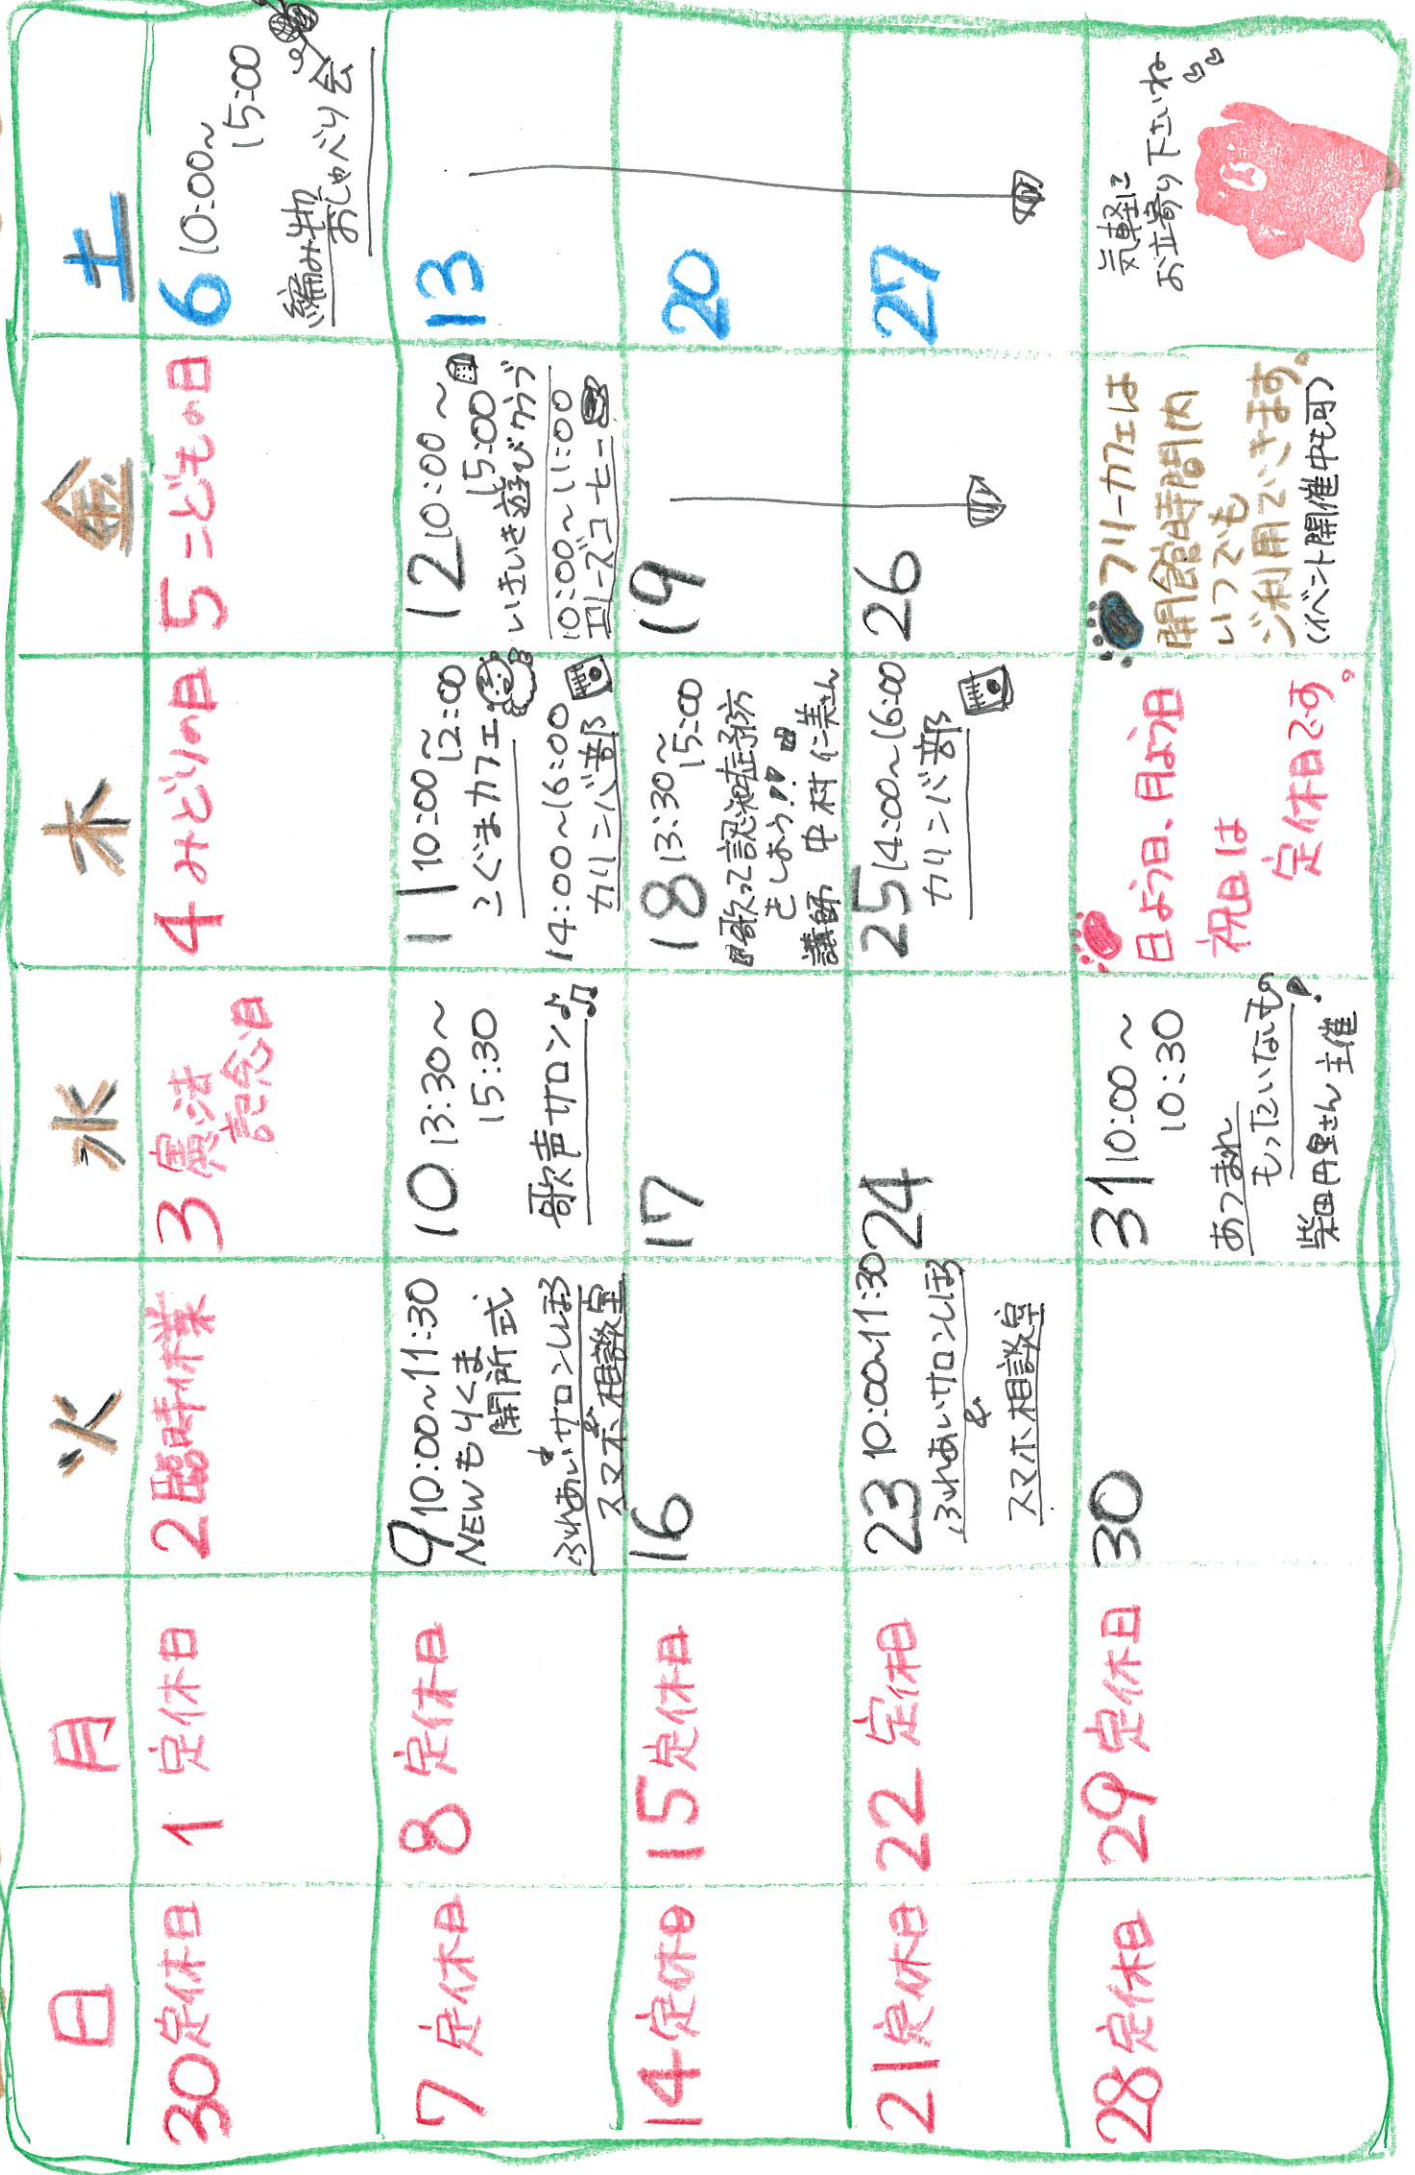 日 月 火 水 木 金 土
30 定休日
1 定休日
2 臨時休業
3 憲法
記念日
4 みどりの日
5 こどもの日
6 10:00~
15:00
編み物
おしゃべり会
7 定休日
8 定休日
9 10:00~11:30
NEWもりくま
開所式
ふれあいサロンしぼろ
&
スマホ相談室
10 13:30~
15:30
歌声サロン♪♫
11 10:00~
12:00
こぐまカフェ
14:00~16:00
カリンバ部
12 10:00~
15:00
いきいき遊びクラブ
10:00~11:00
エレーズコーヒー
13
14 定休日
15 定休日
16
17
18 13:30~
15:00
歌って認知症予防
をしよう!!
講師 中村仁美さん
19
20
21 定休日
22 定休日
23 10:00~11:30
ふれあいサロンしぼろ
&
スマホ相談室
24
25 14:00~16:00
カリンバ部
26
27
28 定休日
29 定休日
30
31 10:00~
10:30
あつまれ
もったいないもの
柴田丹里さん主催
日よう日、月よう日
祝日は
定休日です。
フリーカフェは
開館時間内
いつでも
ご利用できます。
(イベント開催中も可)
気軽に
お立寄り下さいね